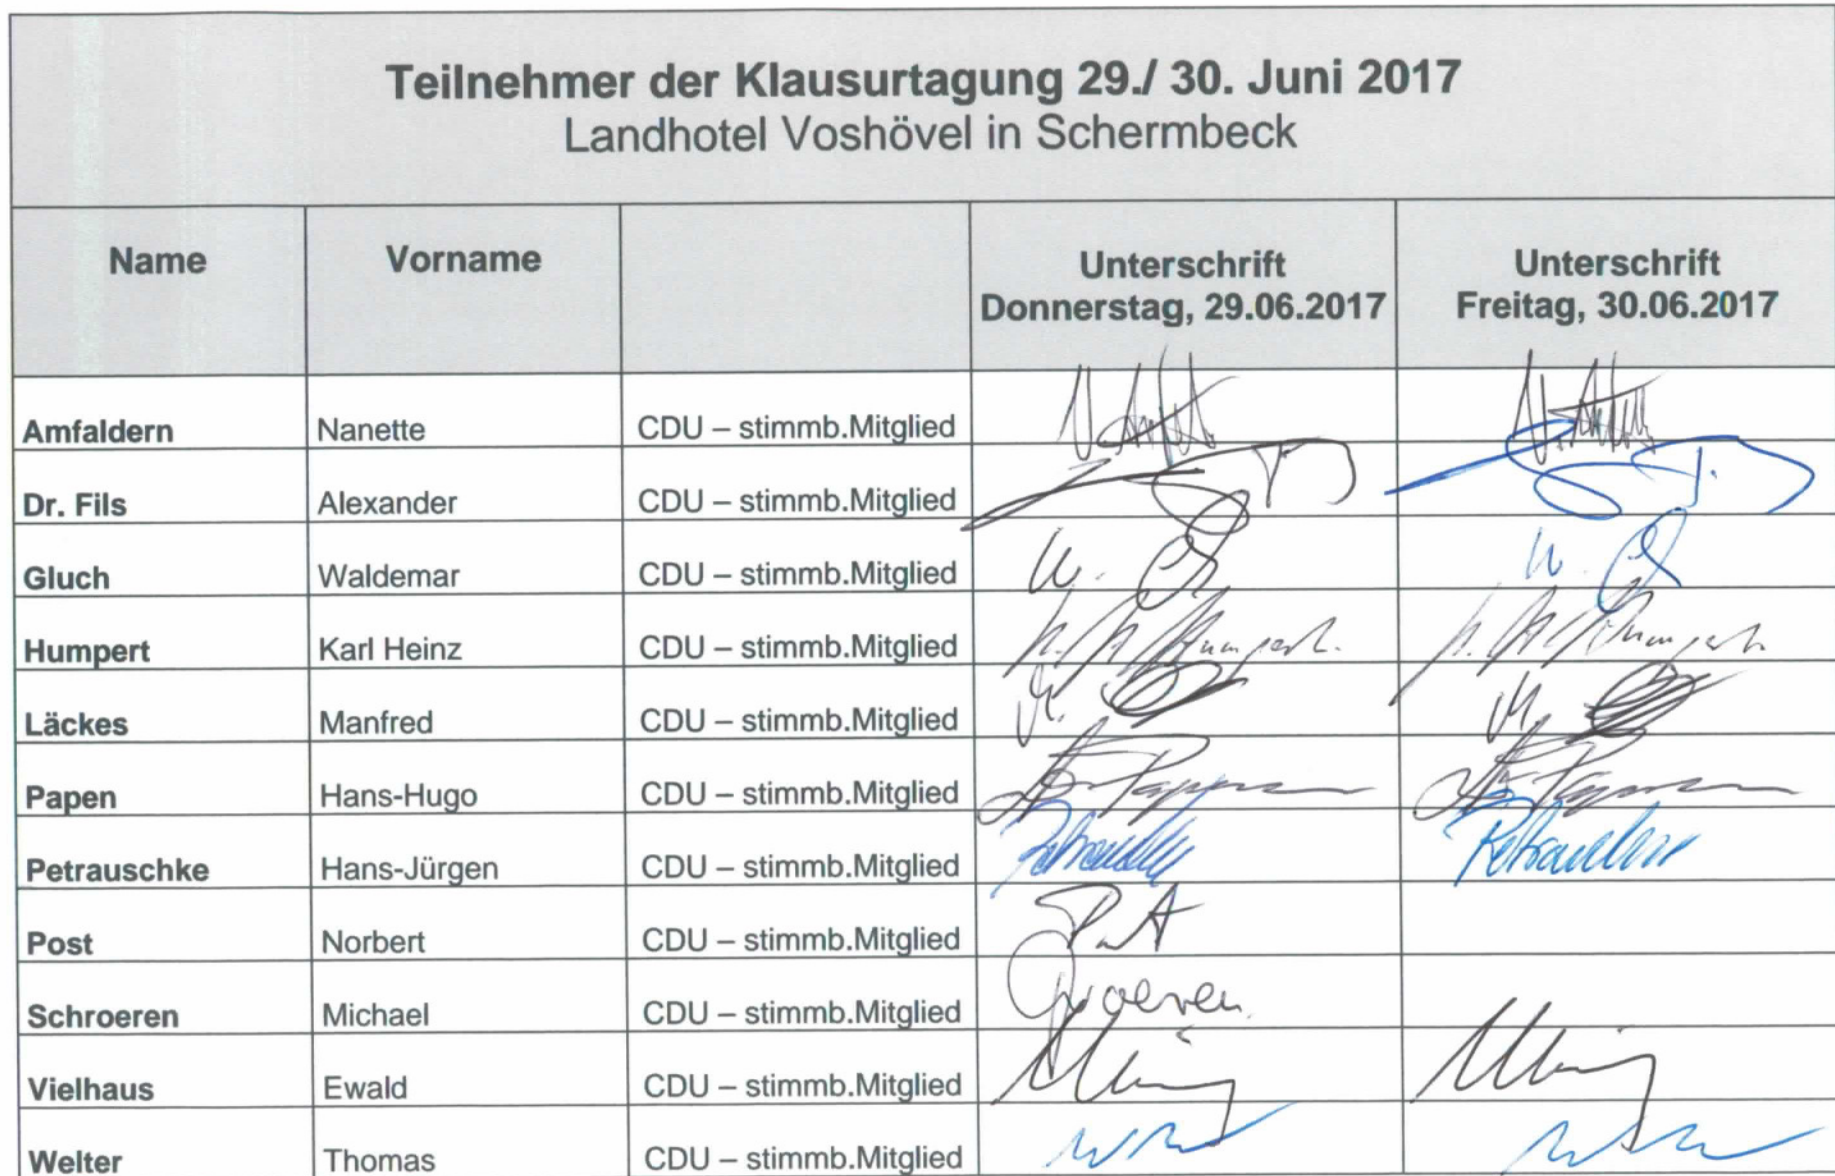 Teilnehmer der Klausurtagung 29./ 30. Juni 2017
Landhotel Voshövel in Schermbeck
Name Vorname Unterschrift Donnerstag, 29.06.2017 Unterschrift Freitag, 30.06.2017
Amfaldern Nanette CDU – stimmb.Mitglied
Dr. Fils Alexander CDU – stimmb.Mitglied
Gluch Waldemar CDU – stimmb.Mitglied
Humpert Karl Heinz CDU – stimmb.Mitglied
Läckes Manfred CDU – stimmb.Mitglied
Papen Hans-Hugo CDU – stimmb.Mitglied
Petrauschke Hans-Jürgen CDU – stimmb.Mitglied
Post Norbert CDU – stimmb.Mitglied
Schroeren Michael CDU – stimmb.Mitglied
Vielhaus Ewald CDU – stimmb.Mitglied
Welter Thomas CDU – stimmb.Mitglied